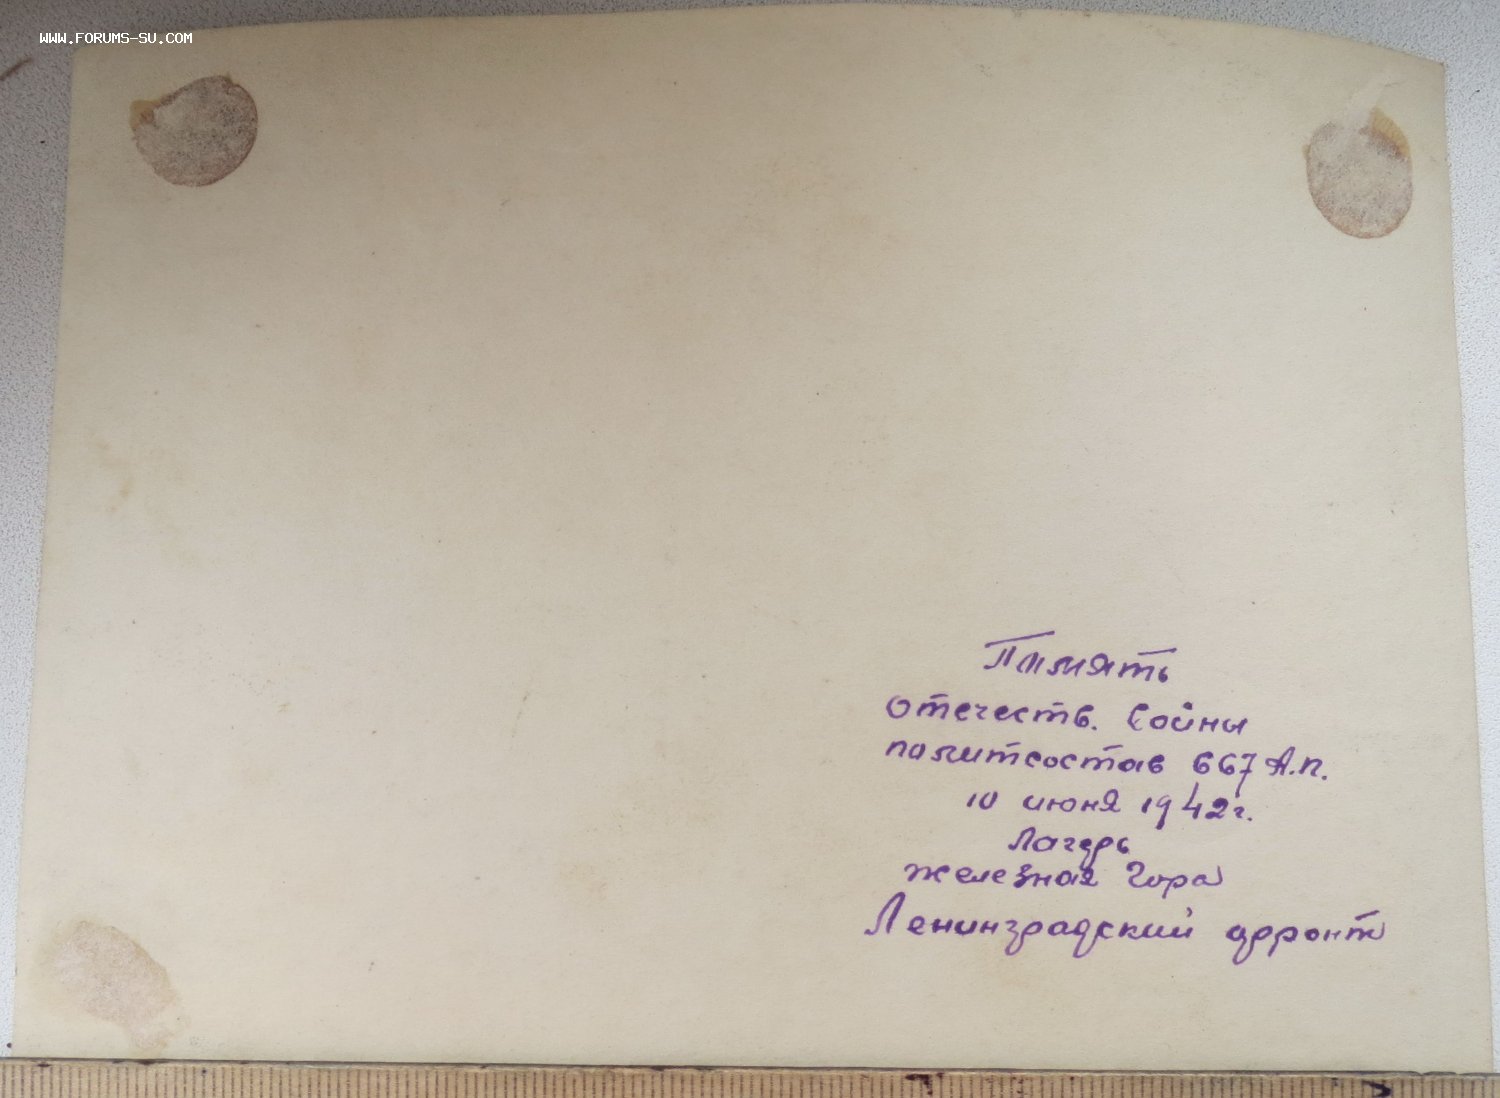 WWW.FORUMS-SU.COM
Память
отечеств. войны
политсостав 667 А.П.
10 июня 1942г.
Лагерь
железная Гора
Ленинградский фронт